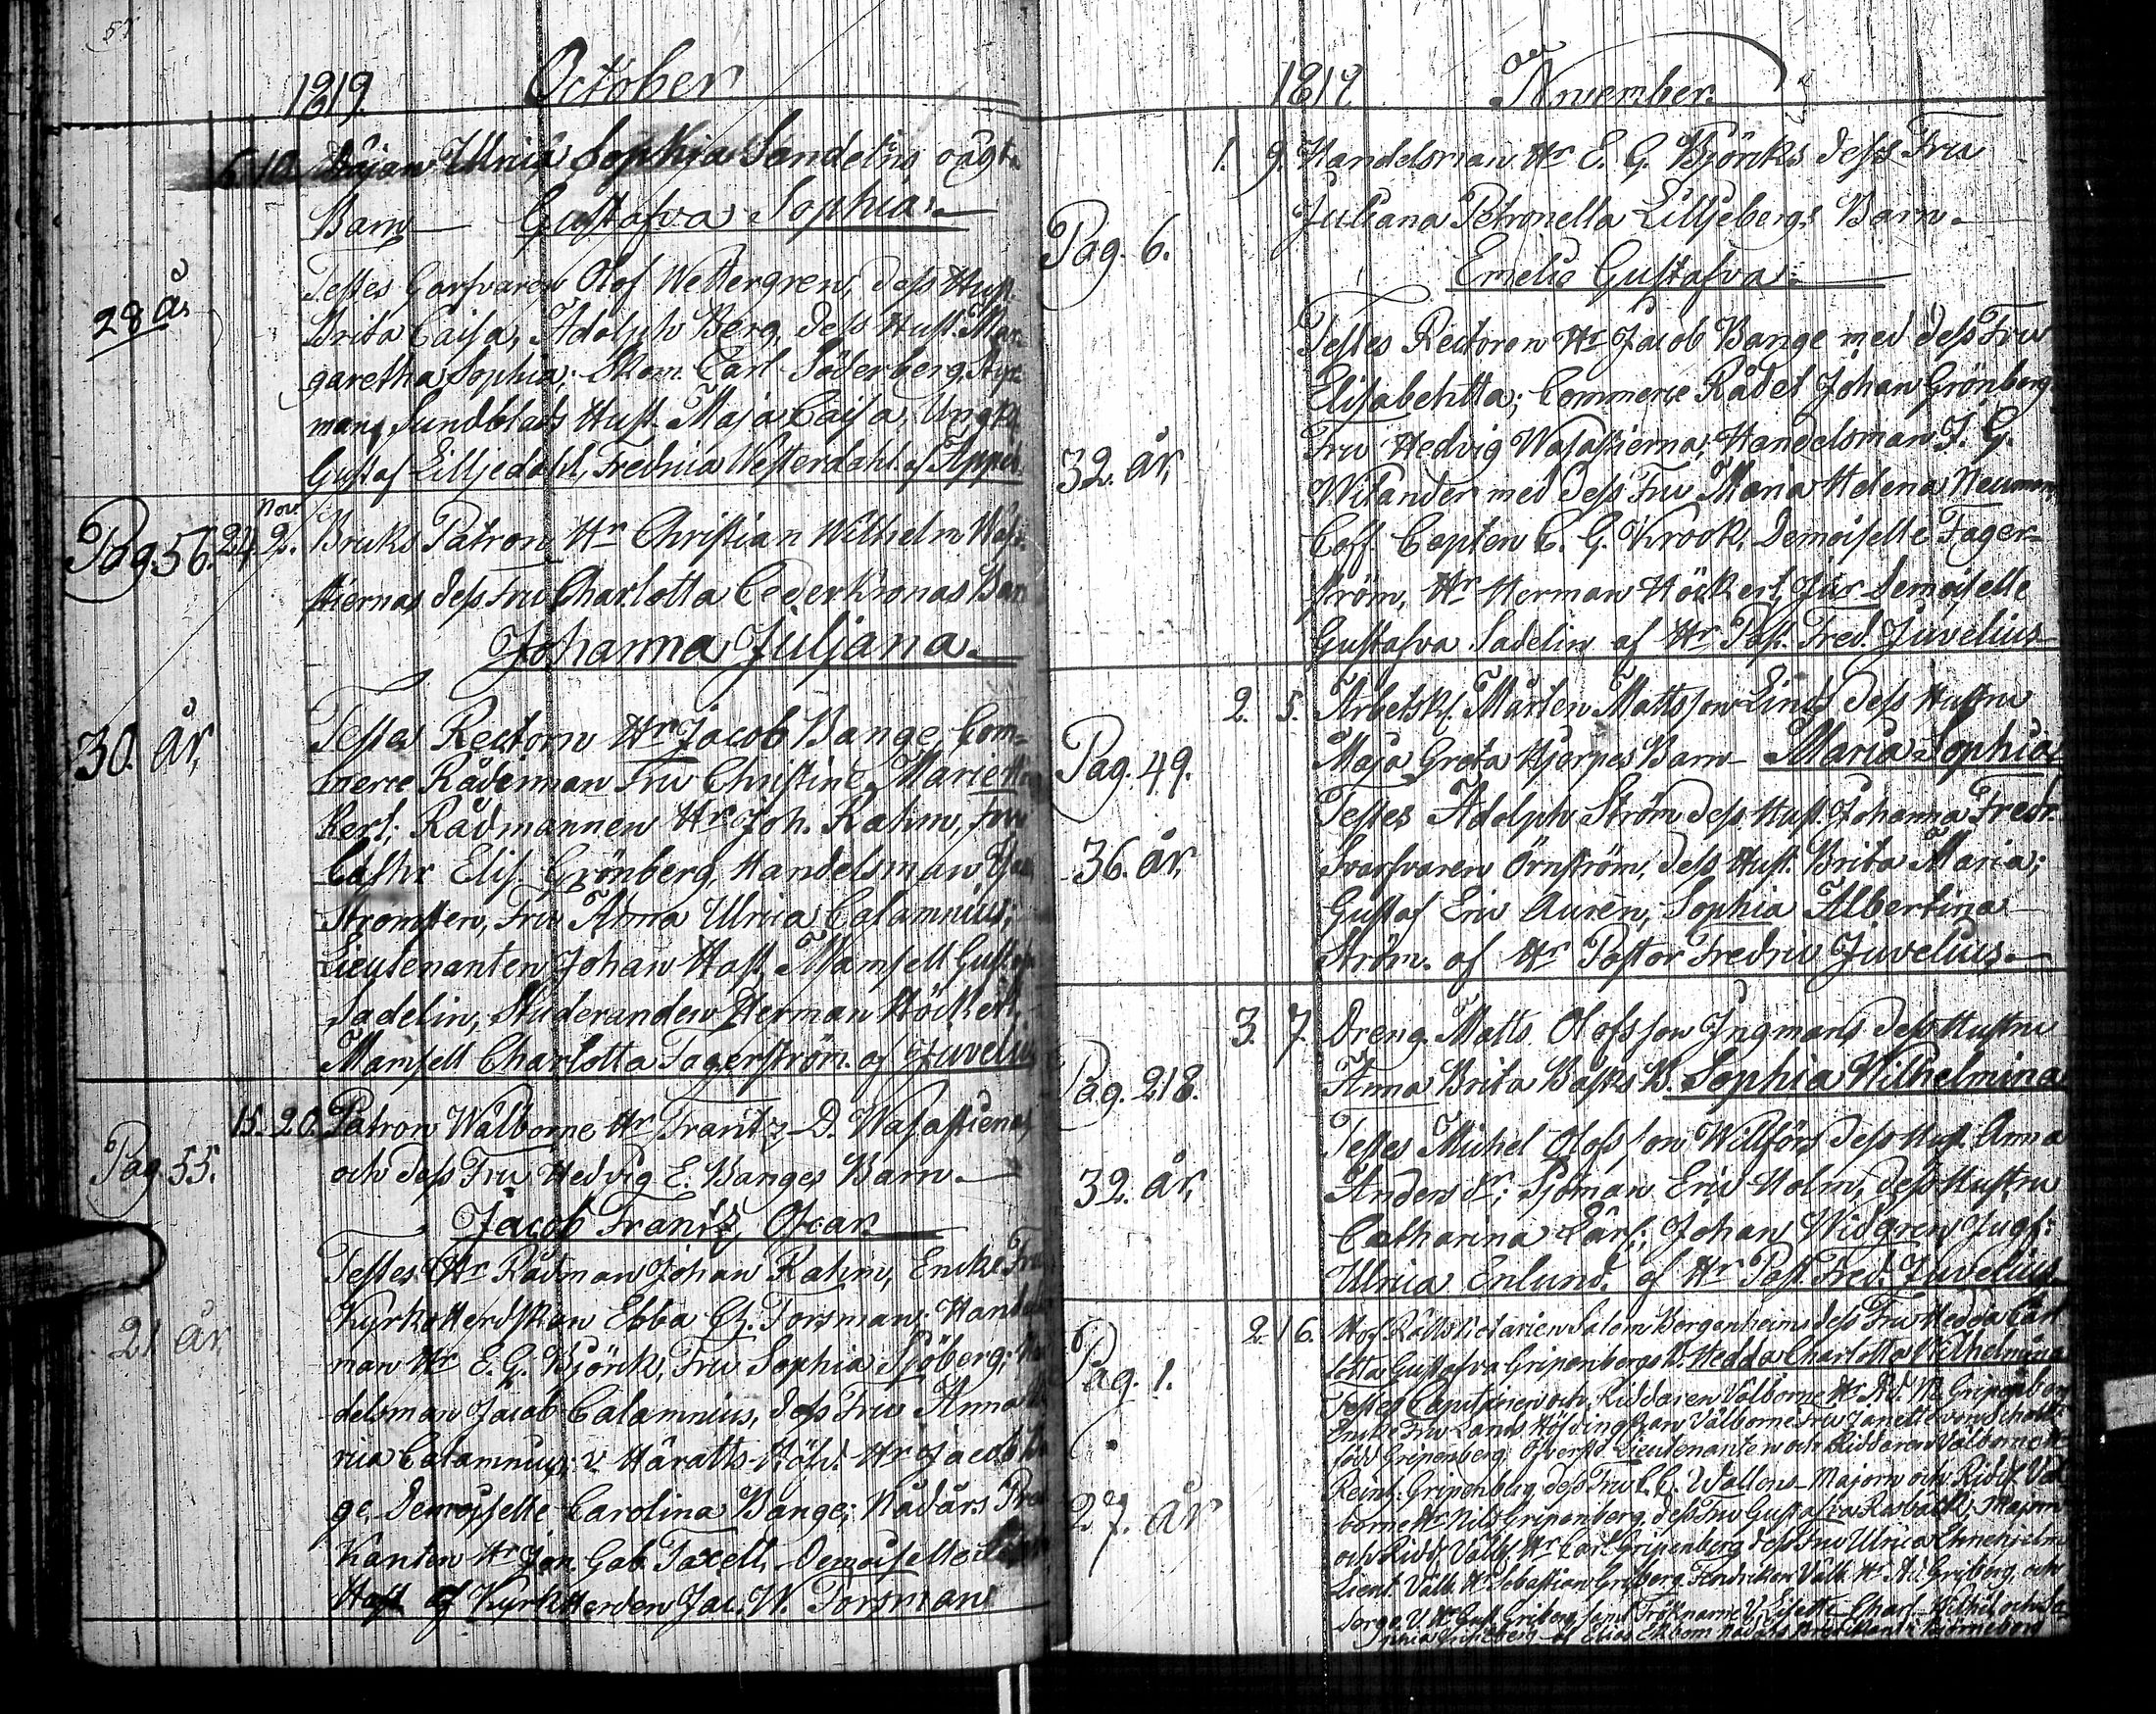 57
1819. October
6. 10. Pigan Ulrica Sophia Sendelins oägta
Barn Gustafva Sophia.
28 år
Testes Garfvaren Olof Wettergren, dess Hust.
Brita Caisa, Adolph Berg, dess Hust. Mar-
garetha Sophia; Skom. Carl Söderberg, Styr-
man Sundblads Hust. Maja Caisa, Ungk.
Gustaf Lilljedahl, Fredrica Westerdahl af
Pag. 56. 24 Nov. 2. Bruks Patron Hr Christian Wilhelm Wasa-
stiernas dess Fru Charlotta Cederkronas Barn
Johanna Juljana.
30. år,
Testes Rectorn Hr Jacob Bange, Com-
merce Rådinnan Fru Christine Marie Höc-
kert; Rådmannen Hr Joh. Rahm, Fru
Cathr Elis. Grönberg, Handelsman
Stromsten, Fru Anna Ulrica Calamnius;
Lieutenanten Johan Hast, Mamsell Gustafva
Sadelin, Studeranden Herman Höckert,
Mamsell Charlotta Fagerström. af Juvelius
Pag. 55. 15. 20. Patron Wälborne Hr Frantz D. Wasastiernas
och dess Fru Hedvig E. Banges Barn
Jacob Frantz Oscar.
21 år,
Testes Hr Rådman Johan Rahm, Enke Fru
Kyrkoherdskan Ebba Ch. Forsman; Handels-
man Hr E. G. Björck, Fru Sophia Sjöberg; Han-
delsman Jacob Calamnius, dess Fru Anna Ul-
rica Calamnius; v. Häradts Höfd. Hr Jacob Ban-
ge, Demoiselle Carolina Bange; Rådårs Pre-
kanten Hr Jon. Gab. Taxell, Demoiselle
Hast af Kyrkoherden Jac. W. Forsman

1819 November.
Pag. 6. 1. 9. Handelsman Hr E. G. Björcks dess Fru
Juliana Petronella Lilljebergs Barn.
Emelie Gustafva.
32. år,
Testes Rectoren Hr Jacob Bange med dess Fru
Elisabehtta; Commerce Rådet Johan Grönberg
Fru Hedvig Wasastierna; Handelsman J. G.
Wilander med dess Fru Maria Helena Neuman
Coff. Capten C. G. Krook, Demoiselle Fager-
ström, Hr Herman Höckert, Jür Demoiselle
Gustafva Sadelin af Hr Past. Fred. Juvelius
Pag. 49. 2. 5. Arbetsk. Mårten Mattsson Linds dess Hustru
Maja Greta Hjerpes Barn Maria Sophia
36. år,
Testes Adolph Ström dess Hust. Johanna Fredr.
Svarfvaren Örnström, dess Hust. Brita Maria;
Gustaf Eric Aurén, Sophia Albertina
Ström. af Hr Pastor Fredric Juvelius.
Pag. 218. 3. 7. Dreng. Matts Olofsson Ingmans dess Hustru
Anna Brita Basks B. Sophia Wilhelmina
32. år,
Testes Michel Olofsson Willförs dess Hust. Anna
Anders dr; Sjöman Eric Holm, dess Hustru
Catharina Carls; Johan Widgren Jugf.
Ulrica Enlund. af Hr Past. Fred. Juvelius
Pag. 1. 2. 16. Hof Rätts Notarien Salom Bergenheims dess Fru Hedda Carl-
lotta Gustafva Gripenbergs B. Hedda Charlotta Wilhelmina
27. år
Testes Capitainen och Riddaren Välborne Hr Ad. W. Gripenberg
Enke Fru Lands Höfdingskan Välborne Fru Janette von Schoultz
född Gripenberg; Öfverste Lieutenanten och Riddaren Välborne Hr
Reint. Gripenberg, dess Fru C. C. Wallens Majorn och Ridd. Väl-
borne Hr Nils Gripenberg, dess Fru Gustafva Rosback; Majorn
och Ridd. Välb. Hr Carl Gripenberg dess Fru Ulrica Ehrnehjelm
Lieut. Välb. Hr Sebastian Gripberg, Fendriken Välb. Hr Ad. Gripberg, och
af Elias Ekbom Björneborg